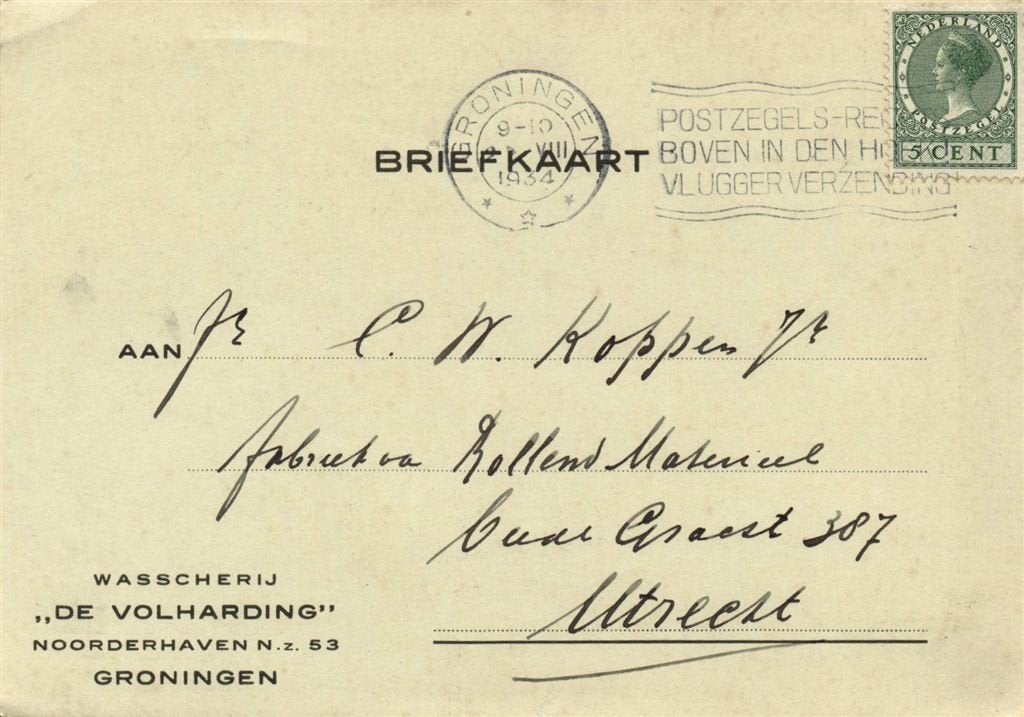 NEDERLAND
POSTZEGEL
5 CENT
GRONINGEN
9-10
VIII
1934
POSTZEGELS-REC
BOVEN IN DEN HO
VLUGGER VERZENDING
BRIEFKAART
AAN
C. W. Koppen Jr
fabriek van Rollend Materieel
Oude Gracht 387
Utrecht
WASSCHERIJ
„DE VOLHARDING"
NOORDERHAVEN N.z. 53
GRONINGEN